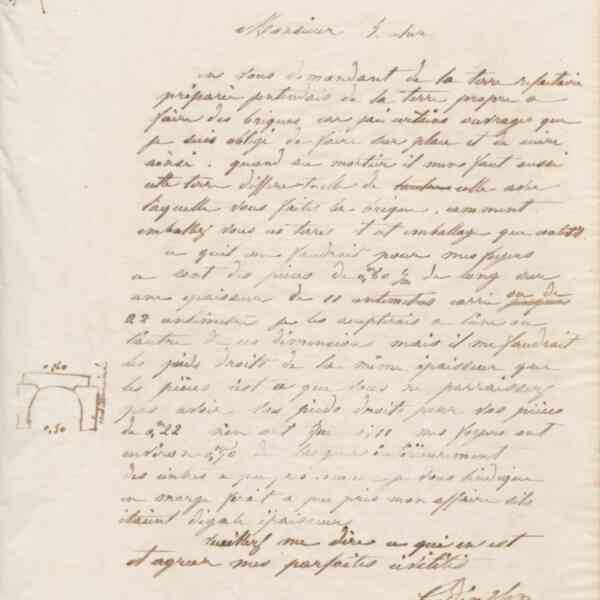 Monsieur
en vous demandant de la terre réfractaire
préparée j'entendais de la terre propre a
faire des briques car j'ai certains ouvrages que
je suis obligé de faire sur place et de cuire
ainsi. quand au mortier il nous faut aussi
cette terre differe t elle de celle avec
laquelle vous faites la brique. comment
emballez vous vos terres et cet emballage que coute t il
ce qu'il me faudrait pour mes foyers
ce sont des pièces de 0,m60 c/m de long sur
une épaisseur de 11 centimetres carré ou de
22 centimetres je les accepterais a l'une ou
l'autre de ces dimensions mais il me faudrait
les pieds droits de la même épaisseur que
les pièces c'est ce que vous ne parraissez
pas avoir les pieds droits pour vos pièces
de 0,m22 n'en ont que 0,11 mes foyers ont
environ 0,m50 de largeur intérieurement
des cintres a peu pres comme je vous l'indique
en marge ferait a peu pres mon affaire s'ils
étaient d'égale épaisseur
0,60
0,50
veuillez me dire ce qui en est
et agréer mes parfaites civilités